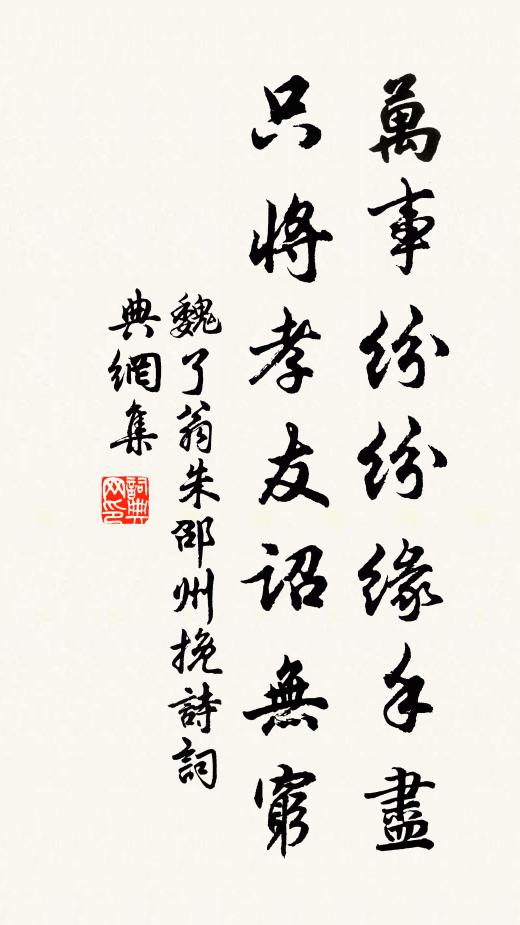 萬事紛紛緣手盡
只將孝友詔無窮
魏了翁朱邵州挽詩詞
典網集
詞典网印